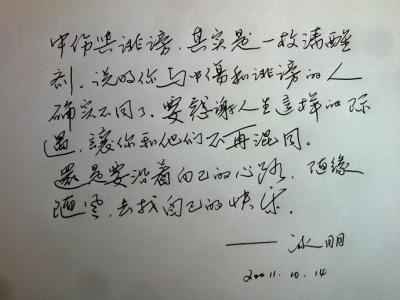 中伤与诽谤，其实是一枚清醒
剂，说明你与中傷和诽谤的人
确实不同了，要感谢人生这样的际
遇，讓你和他们不再混同。
還是要沿着自己的心路，随缘
随喜，去找自己的快乐。
—— 冰明
2011.10.14